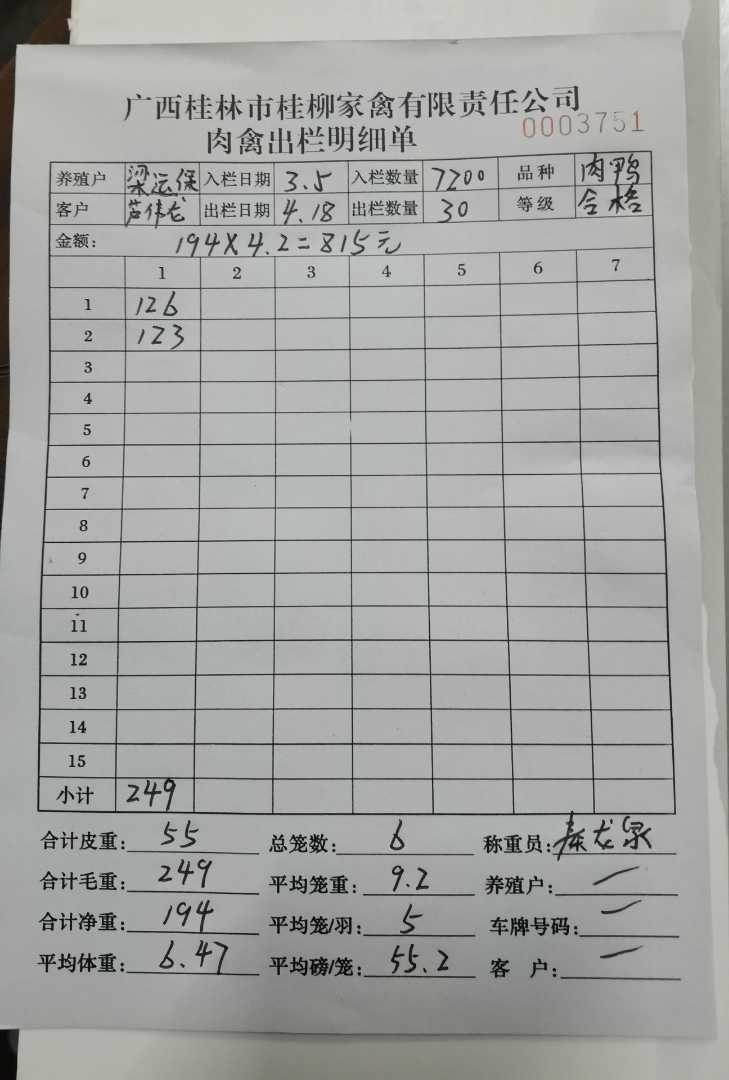 广西桂林市桂柳家禽有限责任公司
肉禽出栏明细单 0003751
养殖户 梁运保 入栏日期 3.5 入栏数量 7200 品种 肉鸭
客户 芦伟龙 出栏日期 4.18 出栏数量 30 等级 合格
金额: 194×4.2=815元
1 2 3 4 5 6 7
1 126
2 123
3
4
5
6
7
8
9
10
11
12
13
14
15
小计 249
合计皮重: 55 总笼数: 6 称重员: 龙泉
合计毛重: 249 平均笼重: 9.2 养殖户:
合计净重: 194 平均笼/羽: 5 车牌号码:
平均体重: 6.47 平均磅/笼: 55.2 客 户: